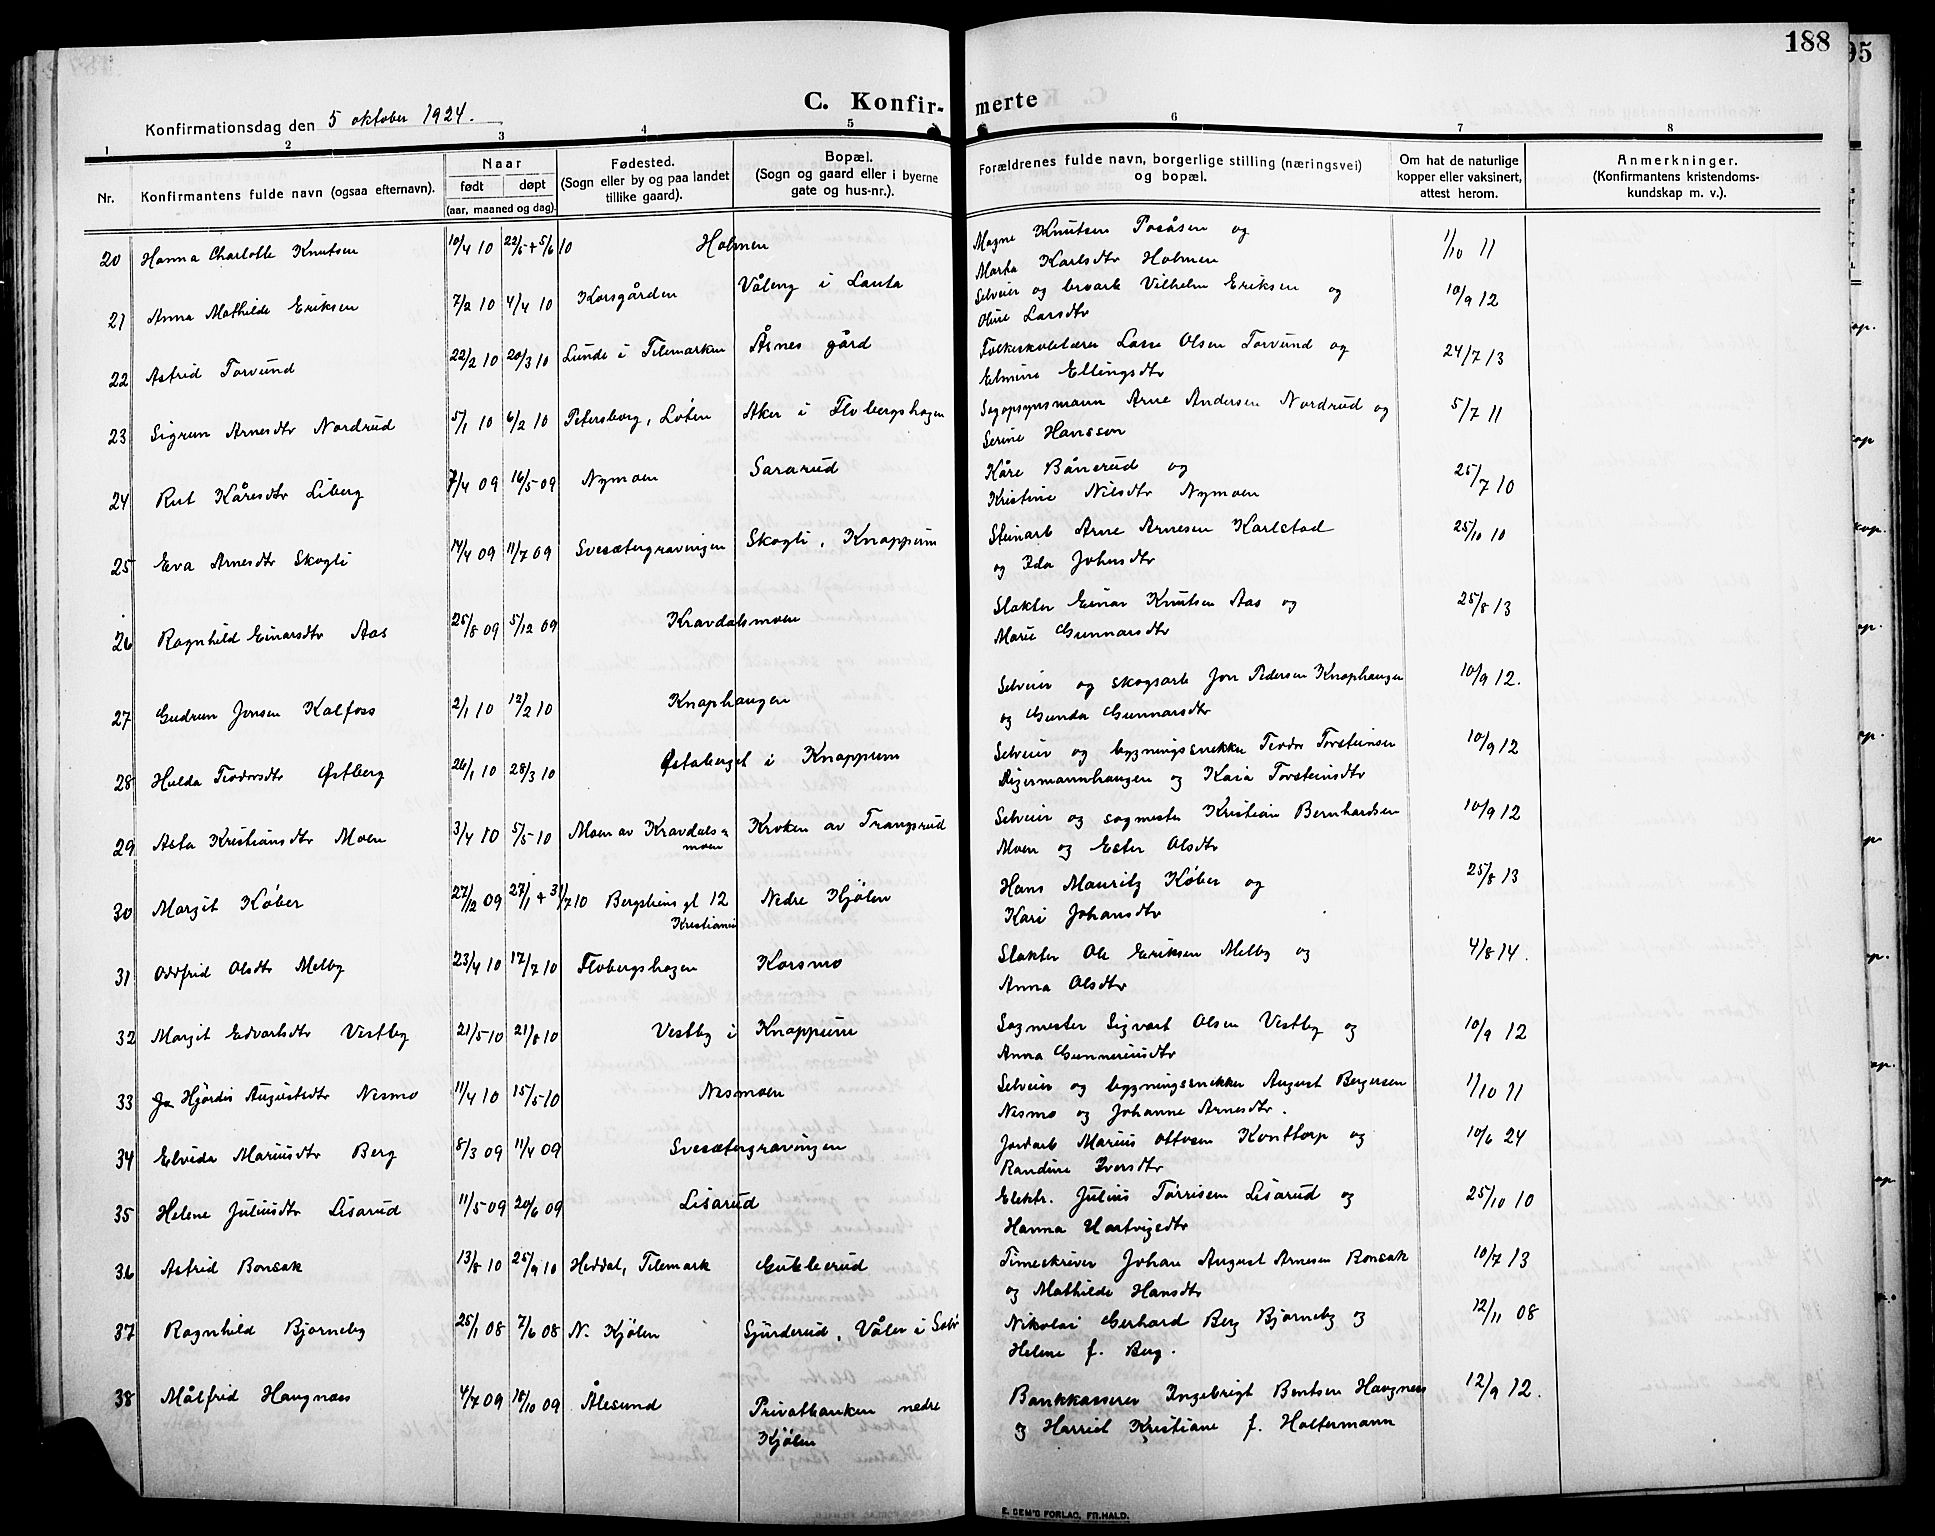 188
95
C. Konfir- merte
Konfirmationsdag den 5 oktober 1924.
1 2 3 4 5 6 7 8
Nr.
Konfirmantens fulde navn (ogsaa efternavn).
Naar
født døpt
(aar, maaned og dag).
Fødested.
(Sogn eller by og paa landet
tillike gaard).
Bopæl.
(Sogn og gaard eller i byerne
gate og hus-nr.).
Forældrenes fulde navn, borgerlige stilling (næringsvei)
og bopæl.
Om hat de naturlige
kopper eller vaksinert,
attest herom.
Anmerkninger.
(Konfirmantens kristendoms-
kundskap m. v.).
20 Hanna Charlotte Knutsen 10/4 10 22/5 + 5/6 10 Holmen Magne Knutsen Posåsen og 1/10 11
Marta Karlsdtr Holmen
21 Anna Mathilde Eriksen 7/2 10 4/4 10 Korsgården Våleng i Lauta Selveier og brvarb Vilhelm Eriksen og 10/9 12
Oline Larsdtr
22 Astrid Torvund 22/2 10 20/3 10 Lunde i Telemarken Åsnes gård Folkeskolelærer Lasse Olsen Torvund og 24/7 13
Elmine Ellingsdtr
23 Sigrun Arnesdtr Nordrud 5/1 10 6/2 10 Petersborg, Løten Aker i Flobergshagen Sagopsynsmann Arne Andersen Nordrud og 5/7 11
Serine Hanssen
24 Rut Kåresdtr Liberg 7/4 09 16/5 09 Nymoen Sararud Kåre Bånerud og 25/7 10
Kristine Nilsdtr Nymoen
25 Eva Arnesdtr Skogli 14/4 09 11/7 09 Svesætergravingen Skogli, Knappum Steinarb Arne Arnesen Karlstad 25/10 10
og Ida Johnsdtr
26 Ragnhild Einarsdtr Aas 25/8 09 5/12 09 Kravdalsmoen Slakter Einar Knutsen Aas og 25/8 13
Marie Gunnarsdtr
27 Gudrun Jonsen Kalfoss 2/1 10 12/2 10 Knaphaugen Selveier og skogsarb Jon Pedersen Knaphaugen 10/9 12.
og Gunda Gunnarsdtr
28 Hulda Teodorsdtr Østberg 26/1 10 28/3 10 Østaberget i Knappum Selveier og bygningssnekker Teodor Torsteinsen 10/9 12
Rigermannhaugen og Kaia Torsteinsdtr
29 Asta Kristiansdtr Moen 3/4 10 5/5 10 Moen av Kravdals= Kroken av Trangsrud Selveier og sagmester Kristian Bernhardsen 10/9 12
moen Moen og Ester Olsdtr
30 Margit Køber 27/12 09 27/1 + 31/7 10 Bergstiens gt 12 Nedre Kjølen Hans Mauritz Køber og 25/8 13
Kristiania Kari Johansdtr
31 Oddfrid Olsdtr Melby 23/4 10 17/7 10 Flobergshagen Korsmo Slakter Ole Eriksen Melby og 4/8 14.
Anna Olsdtr
32 Margit Edvartsdtr Vestby 21/5 10 21/8 10 Vestby i Knappum Sagmester Sigvart Olsen Vestby og 10/9 12
Anna Gunneriusdtr
33 Hjørdis Augustsdtr Nesmo 11/4 10 15/5 10 Nesmoen Selveier og bygningssnekker August Bergersen 1/10 11
Nesmo og Johanne Arnesdtr.
34 Elvida Mariusdtr Berg 8/3 09 11/4 09 Svesætergravingen Jordarb Marius Ottosen Konttorp og 10/6 24
Randine Iversdtr
35 Helene Juliusdtr Lisarud 11/5 09 20/6 09 Lisarud Elektr. Julius Tørrisen Lisarud og 25/10 10
Hanna Hartvigsdtr
36 Astrid Bonsak 13/8 10 25/9 10 Heddal, Telemark Gulblerud Timeskriver Johan August Arnesen Bonsak 10/7 13
og Mathilde Hansdtr
37 Ragnhild Bjørneby 25/1 08 7/6 08 N. Kjølen Gjurderud, Våler i Solør Nikolai Gerhard Berg Bjørneby og 12/11 08
Helene f. Berg.
38 Målfrid Haugnæss 4/7 09 18/10 09 Ålesund Privatbanken nedre Bankkasserer Ingebrigt Bentsen Haugness 12/9 12.
Kjølen og Harriet Kristiane f. Holtermann
E. SEM'S FORLAG, FR.HALD.